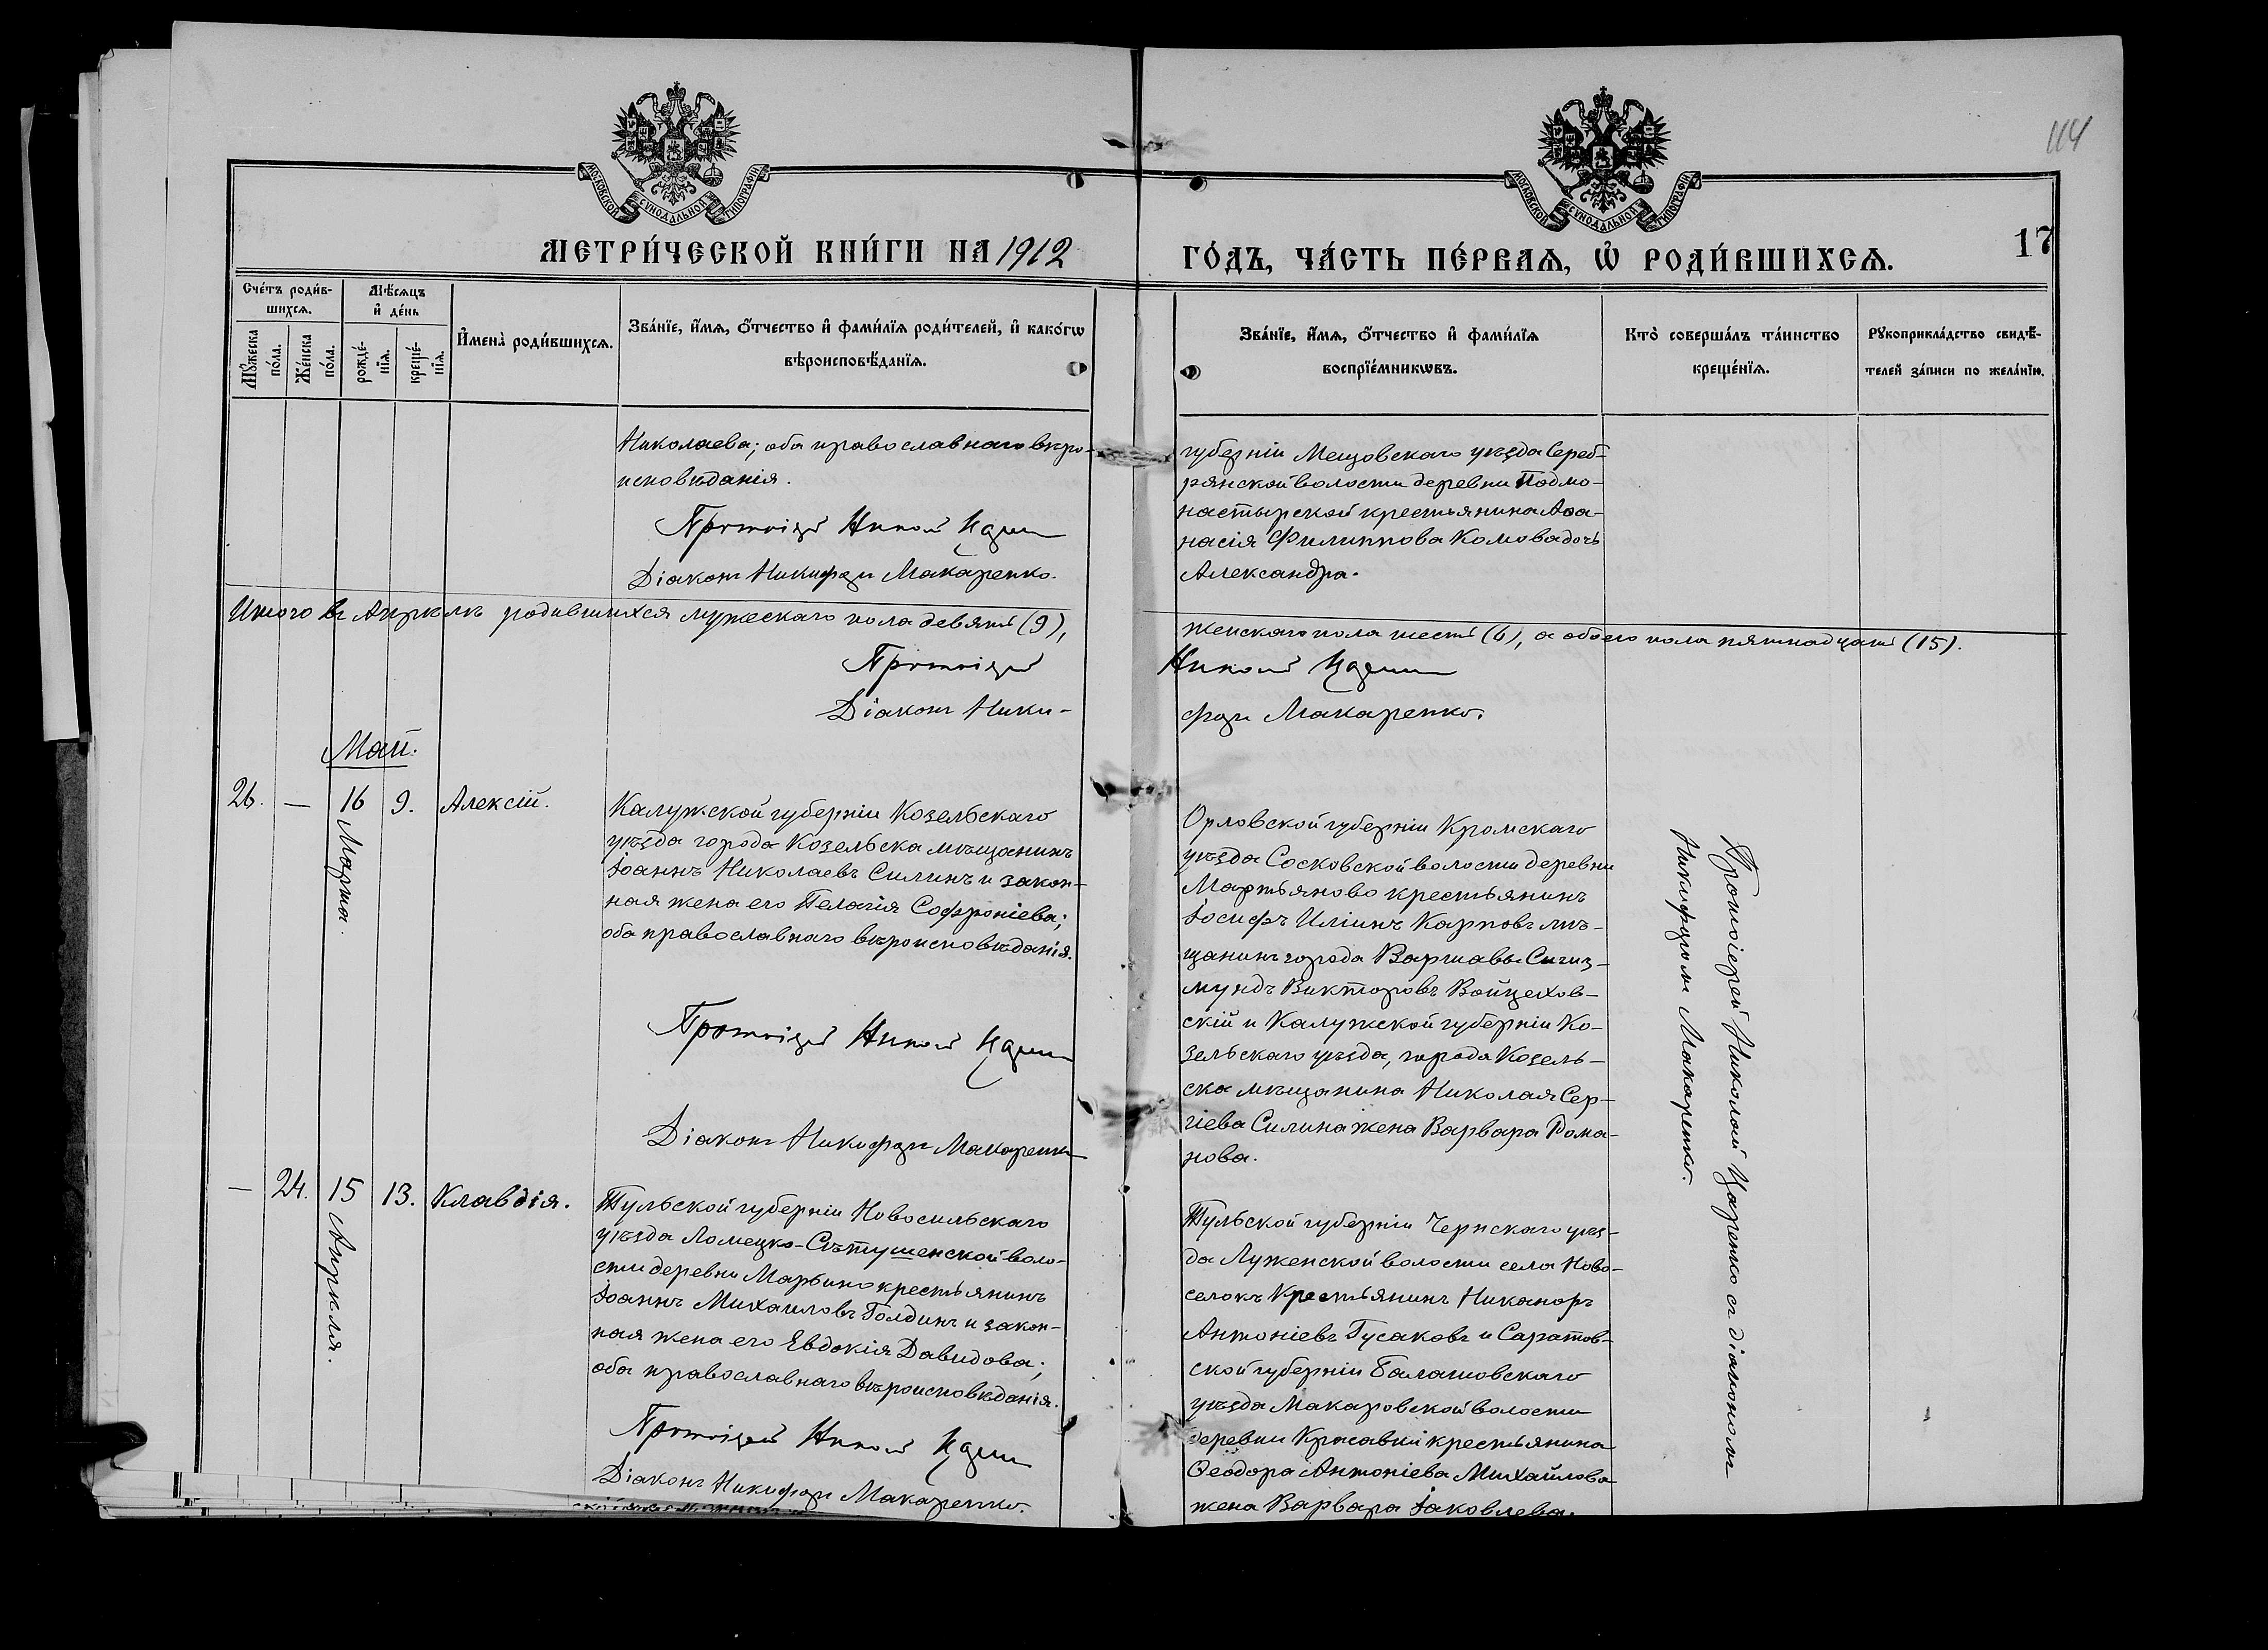 114
МОСКОВСКОЙ СѴНОДАЛЬНОЙ ТИПОГРАФІИ
МОСКОВСКОЙ СѴНОДАЛЬНОЙ ТИПОГРАФІИ
МЕТРИ́ЧЕСКОЙ КНИ́ГИ НА 1912
ГО́ДЪ, ЧА́СТЬ ПЕ́РВАѦ, Ѡ҆ РОДИ́ВШИХСѦ.
17
Сче́тъ роди́в-
шихсѧ.
Мꙋ́жеска
по́ла.
Же́нска
по́ла.
Мѣ́сѧцъ
и҆ де́нь
рожде́-
нїѧ.
креще́-
нїѧ.
И҆мена̀ роди́вшихсѧ.
Зва́нїе, и҆́мѧ, ѻ҆́тчество и҆ фами́лїѧ роди́телей, и҆ како́гѡ
вѣроисповѣ́данїѧ.
Зва́нїе, и҆́мѧ, ѻ҆́тчество и҆ фами́лїѧ
воспрїе́мникѡвъ.
Кто̀ соверша́лъ та́инство
креще́нїѧ.
Рꙋкоприкла́дство свидѣ́-
телей за́писи по жела́нїю.
Николаева; оба православнаго вѣро-
исповѣданія.
Протоіерей Николай
Діаконъ Никифоръ Макаренко.
губерніи Мещовскаго уѣзда Сереб-
рянской волости деревни Подмо-
настырской крестьянина Аѳа-
насія Филиппова Комова дочь
Александра.
Итого въ Апрѣлѣ родившихся мужескаго пола девять (9),
женскаго пола шесть (6), а обоего пола пятнадцать (15).
Протоіерей
Николай
Діаконъ Ники-
форъ Макаренко.
Май.
26. — 16 Марта. 9. Алексій.
Калужской губерніи Козельскаго
уѣзда города Козельска мѣщанинъ
Іоаннъ Николаевъ Силинъ и закон-
ная жена его Пелагія Софроніева;
оба православнаго вѣроисповѣданія.
Протоіерей Николай
Діаконъ Никифоръ Макаренко
Орловской губерніи Кромскаго
уѣзда Сосковской волости деревни
Мартьяново крестьянинъ
Іосифъ Иліинъ Карповъ мѣ-
щанинъ города Варшавы Сигиз-
мундъ Викторовъ Войцехов-
скій и Калужской губерніи Ко-
зельскаго уѣзда, города Козель-
ска мѣщанина Николая Сер-
гіева Силина жена Варвара Рома-
нова.
Протоіерей Николай Царенко съ діакономъ
Никифоромъ Макаренко.
— 24. 15 Апрѣля. 13. Клавдія.
Тульской губерніи Новосильскаго
уѣзда Ломецко-Сѣтушенской воло-
сти деревни Марьино крестьянинъ
Іоаннъ Михаиловъ Голдинъ и закон-
ная жена его Евдокія Давидова;
оба православнаго вѣроисповѣданія.
Протоіерей Николай
Діаконъ Никифоръ Макаренко.
Тульской губерніи Чернскаго уѣз-
да Луженской волости села Ново-
селокъ Крестьянинъ Никаноръ
Антоніевъ Гусаковъ и Саратов-
ской губерніи Балашовскаго
уѣзда Макаровской волости
деревни крестьянина
Ѳеодора Антоніева Михайлова
жена Варвара Іаковлева.